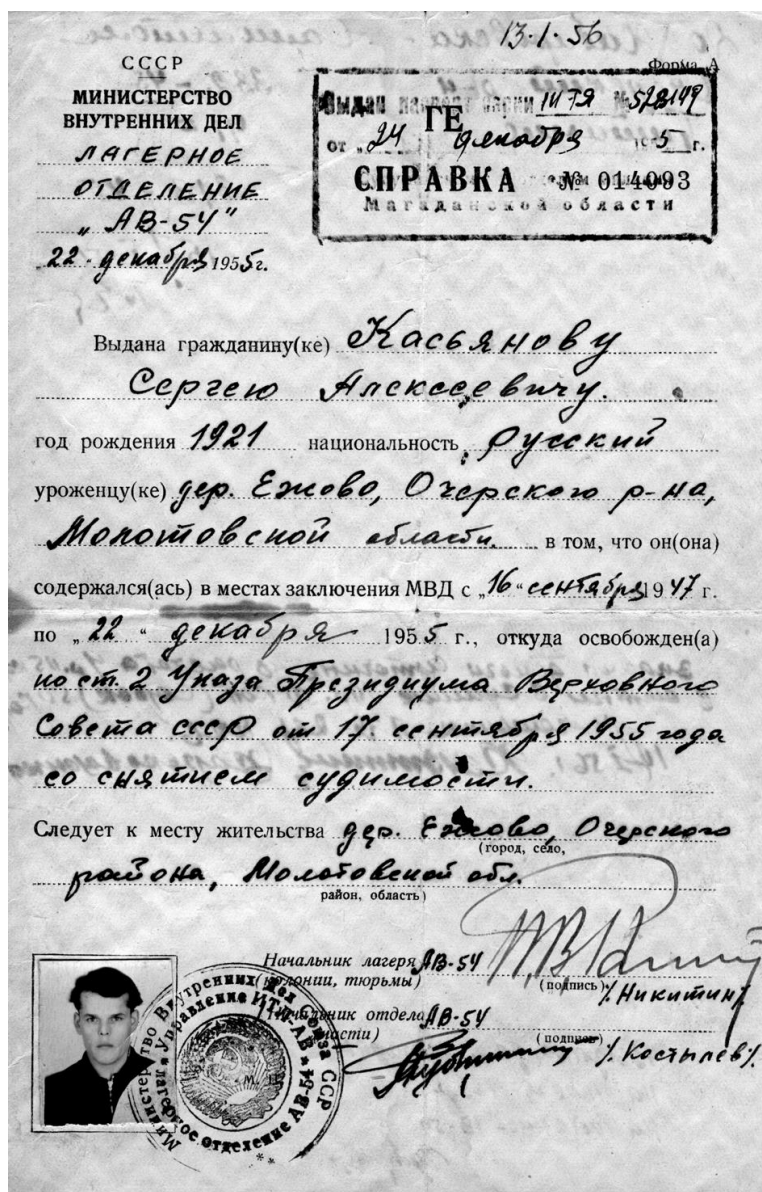 13.1.56
СССР
Форма А
МИНИСТЕРСТВО
ВНУТРЕННИХ ДЕЛ
ЛАГЕРНОЕ
ОТДЕЛЕНИЕ
„АВ-54"
22. декабря 1955г.
Выдан паспорт серии №528149
ГЕ
от „24 декабря 195 5 г.
СПРАВКА № 014093
Магаданской области
Выдана гражданину(ке) Касьянову
Сергею Алексеевичу.
год рождения 1921 национальность русский
уроженцу(ке) дер. Ежово, Очерского р-на,
Молотовской области. в том, что он(она)
содержался(ась) в местах заключения МВД с „16" сентября 1947 г.
по „22" декабря 1955 г., откуда освобожден(а)
по ст. 2 Указа Президиума Верховного
Совета СССР от 17. сентября 1955 года
со снятием судимости.
Следует к месту жительства дер. Ежово, Очерского
(город, село,
района, Молотовской обл.
район, область)
Начальник лагеря АВ-54
(колонии, тюрьмы)
(подпись)
/.Никитин/
Начальник отдела АВ-54
(части)
(подпись)
/.Костылев/.
Министерство Внутренних Дел Союза ССР
Управление ИТЛ-АВ
Лагерное отделение АВ-54
М.